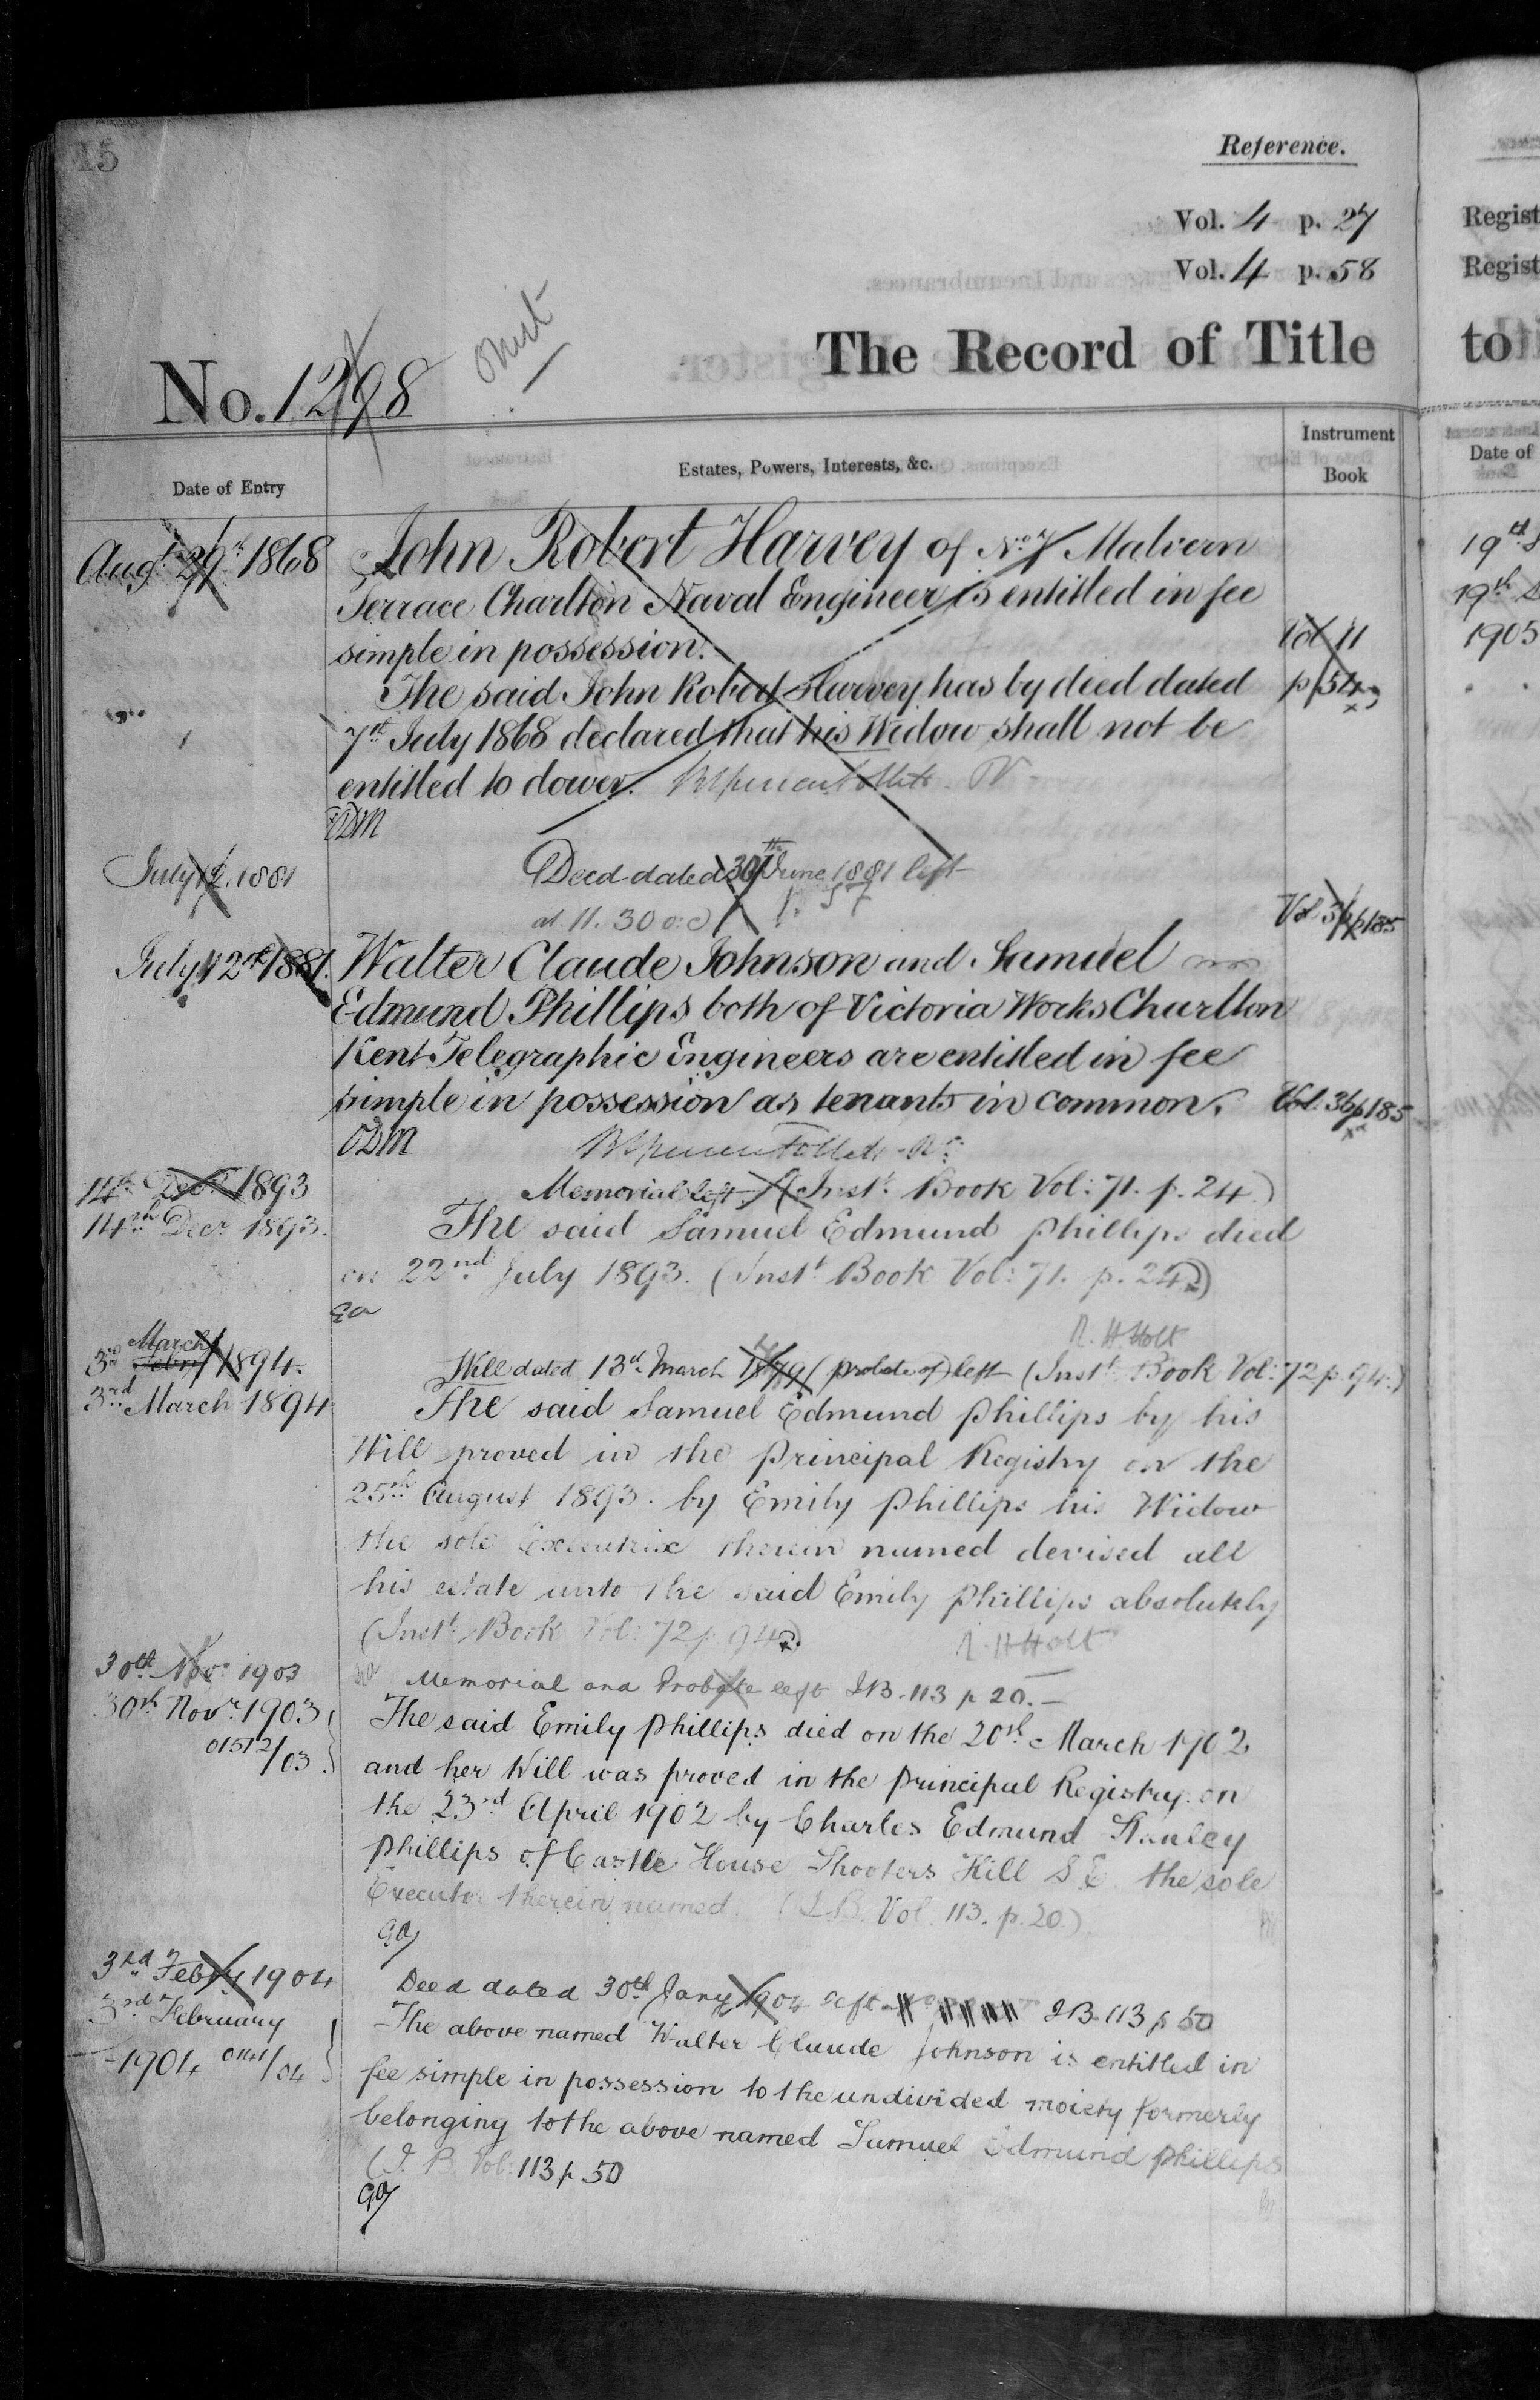 15
Reference.
Vol. 4 p. 27
Vol. 4 p. 58
omit
The Record of Title
No. 1298
Date of Entry
Estates, Powers, Interests, &c.
Instrument Book
Augt 29th 1868
John Robert Harvey of No 7 Malvern
Terrace Charlton Naval Engineer is entitled in fee
simple in possession.
Vol 11
The said John Robert Harvey has by deed dated
p 54
7th July 1868 declared that his Widow shall not be
entitled to dower.
ODM
July 12. 1881
Deed dated 30th June 1881 left
at 11.30 o:c
Vol 36 p 185
July 12th 1881.
Walter Claude Johnson and Samuel
Edmund Phillips both of Victoria Works Charlton
Kent Telegraphic Engineers are entitled in fee
simple in possession as tenants in common.
Vol. 36 p 185
ODM
14th Decr 1893
Memorial left (Inst. Book Vol: 71. p. 24.)
14th Decr 1893.
The said Samuel Edmund Phillips died
on 22nd July 1893. (Inst. Book Vol: 71. p. 24.)
R. H. Holt
3rd Feby March 1894.
Will dated 13th March 1879 (probate of) left (Inst. Book Vol: 72 p. 94.)
3rd March 1894
The said Samuel Edmund Phillips by his
Will proved in the Principal Registry on the
25th August 1893. by Emily Phillips his Widow
the sole Executrix therein named devised all
his estate unto the said Emily Phillips absolutely
(Inst. Book Vol: 72 p. 94.)
R. H. Holt
30th Nov. 1903
Memorial and Probate left I.B. 113 p 20.
30th Novr 1903
01512/03
The said Emily Phillips died on the 20th March 1902
and her Will was proved in the Principal Registry on
the 23rd April 1902 by Charles Edmund Stanley
Phillips of Castle House Shooters Hill S.E. the sole
Executor therein named. (I.B. Vol. 113. p. 20.)
3rd Feby 1904
Deed dated 30th Jany 1904 left I.B. 113 p 50
3rd February
1904
The above named Walter Claude Johnson is entitled in
fee simple in possession to the undivided moiety formerly
belonging to the above named Samuel Edmund Phillips
(I. B. Vol: 113 p 50
Regist
Regist
to
Date of
19th
19th
1905